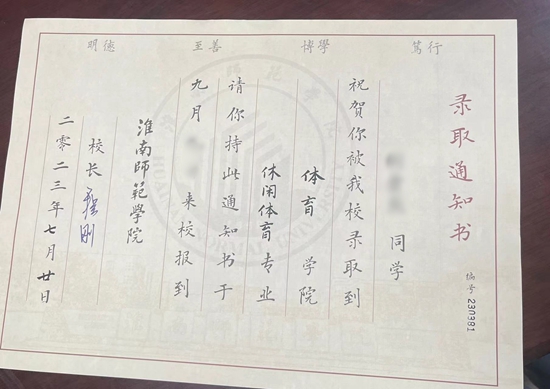 篤行
博學
至善
明德
录取通知书
编号 230381
同学
祝贺你被我校录取到
体育 学院
休闲体育专业
请你持此通知书于
九月 来校报到
淮南師範學院
校长
二零二三年七月廿日